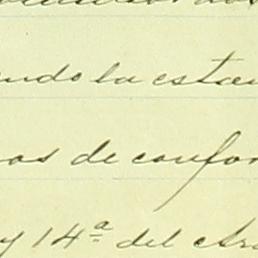 ndo la estan
os de confor
y 14ª del Ar